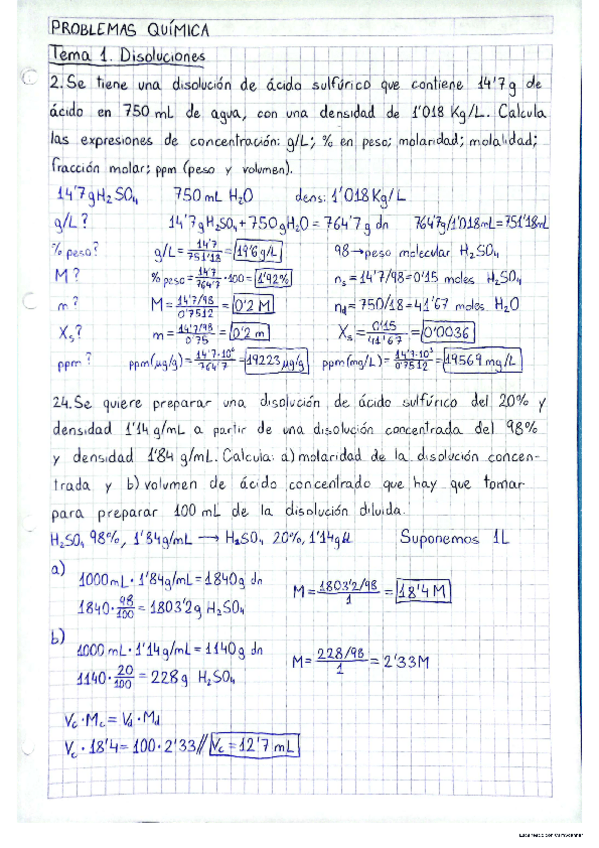 PROBLEMAS QUÍMICA
Tema 1. Disoluciones
2. Se tiene una disolución de ácido sulfúrico que contiene 14'7 g de
ácido en 750 mL de agua, con una densidad de 1'018 Kg/L. Calcula
las expresiones de concentración: g/L; % en peso; molaridad; molalidad;
fracción molar; ppm (peso y volumen).
14'7 g H2SO4 750 mL H2O dens: 1'018 Kg/L
g/L? 14'7 g H2SO4 + 750 g H2O = 764'7 g dn 764'7g/1'018mL = 751'18mL
% peso? g/L = 14'7/751'18 = 19'6 g/L 98→peso molecular H2SO4
M? % peso = 14'7/764'7 · 100 = 1'92% ns = 14'7/98 = 0'15 moles H2SO4
m? M = 14'7/98/0'7512 = 0'2 M nd = 750/18 = 41'67 moles H2O
Xs? m = 14'7/98/0'75 = 0'2 m Xs = 0'15/41'67 = 0'0036
ppm? ppm (µg/g) = 14'7·10⁶/764'7 = 19223 µg/g ppm (mg/L) = 14'7·10³/0'7512 = 19569 mg/L
24. Se quiere preparar una disolución de ácido sulfúrico del 20% y
densidad 1'14 g/mL a partir de una disolución concentrada del 98%
y densidad 1'84 g/mL. Calcula: a) molaridad de la disolución concen-
trada y b) volumen de ácido concentrado que hay que tomar
para preparar 100 mL de la disolución diluida.
H2SO4 98%, 1'84g/mL → H2SO4 20%, 1'14g/ Suponemos 1L
a) 1000mL · 1'84g/mL = 1840g dn M = 1803'2/98/1 = 18'4 M
1840 · 98/100 = 1803'2g H2SO4
b) 1000 mL · 1'14g/mL = 1140g dn M = 228/98/1 = 2'33M
1140 · 20/100 = 228g H2SO4
Vc · Mc = Vd · Md
Vc · 18'4 = 100 · 2'33 // Vc = 12'7 mL